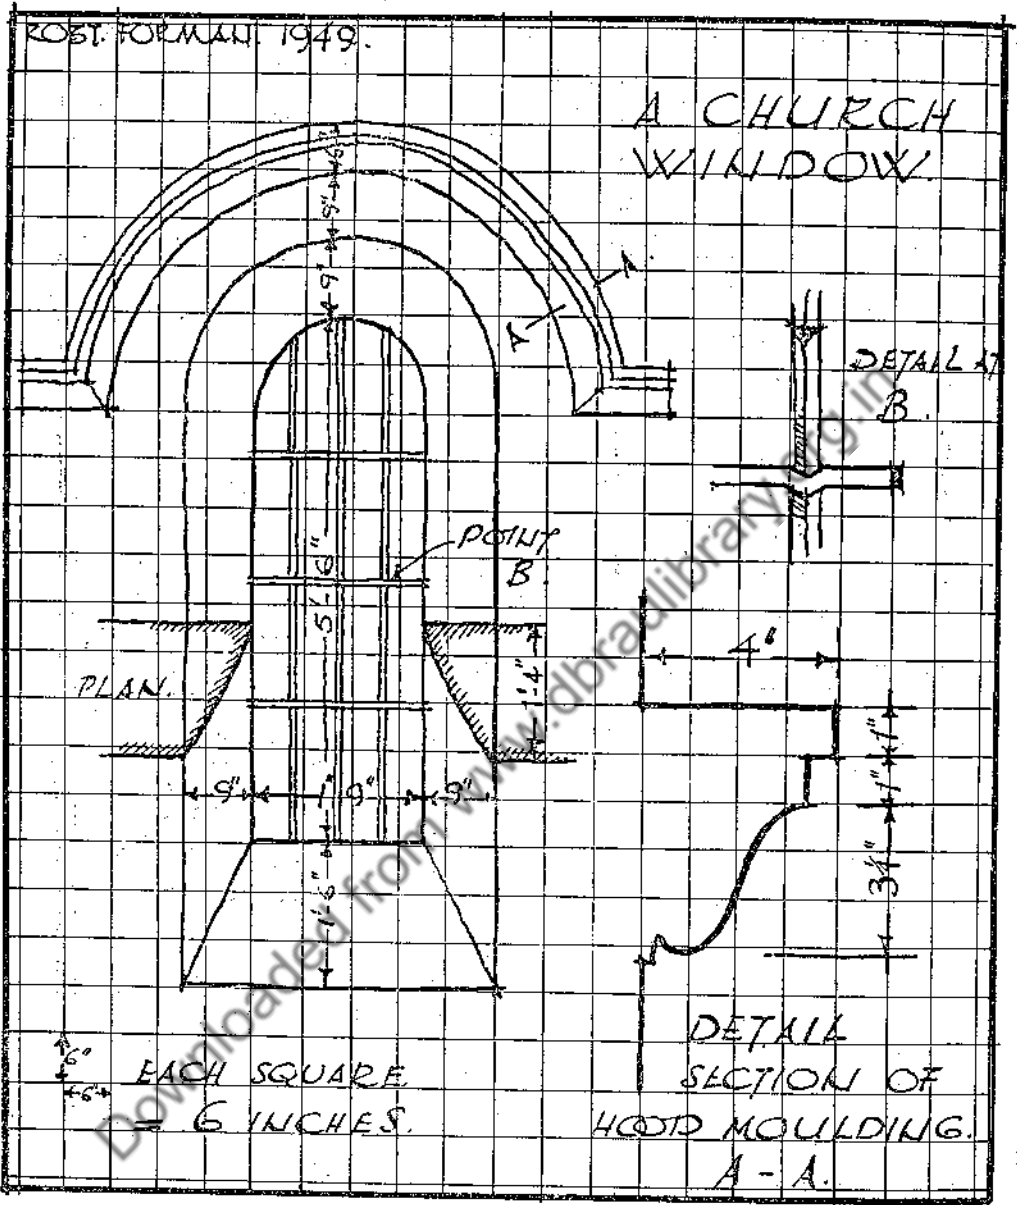 ROBT. FORMAN. 1949.
A CHURCH
WINDOW.
6"
9"
9"
A
A
DETAIL AT
B.
POINT
B.
5'-6"
1'-4"
4"
PLAN.
1"
1"
3¼"
9"
9"
9"
1'-6"
6"
6"
EACH SQUARE
= 6 INCHES.
DETAIL
SECTION OF
HOOD MOULDING.
A - A.
Downloaded from www.dbraulibrary.org.in